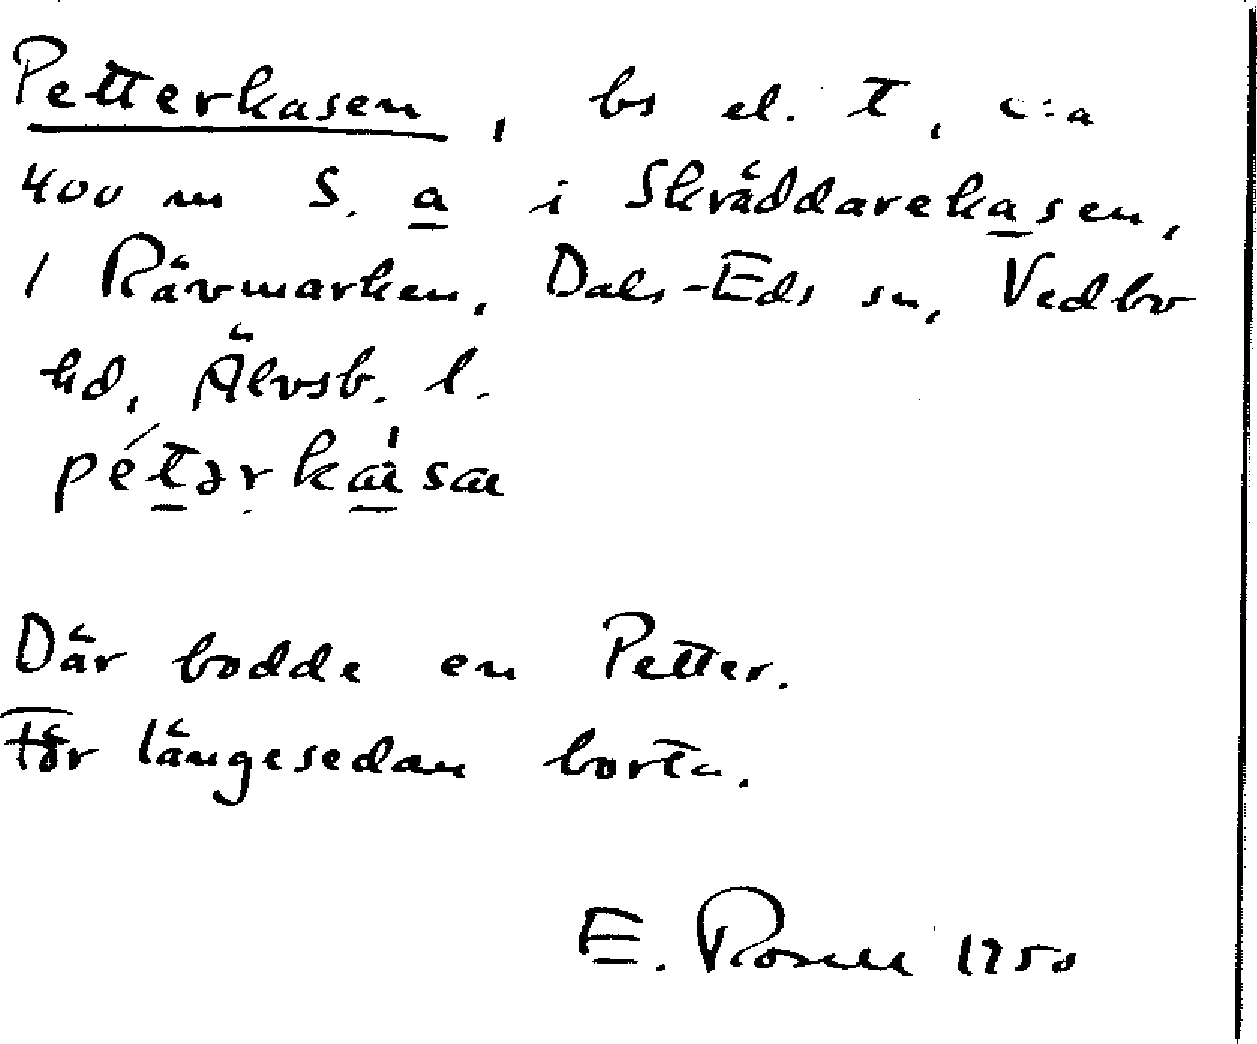 Petterkasen, bs el. t, c:a
400 m S. a i Skräddarekasen,
/ Rävmarken, Dals-Eds sn, Vedbo
hd, Älvsb. l.
Där bodde en Petter.
För längesedan borta.
E. Rosell 1950